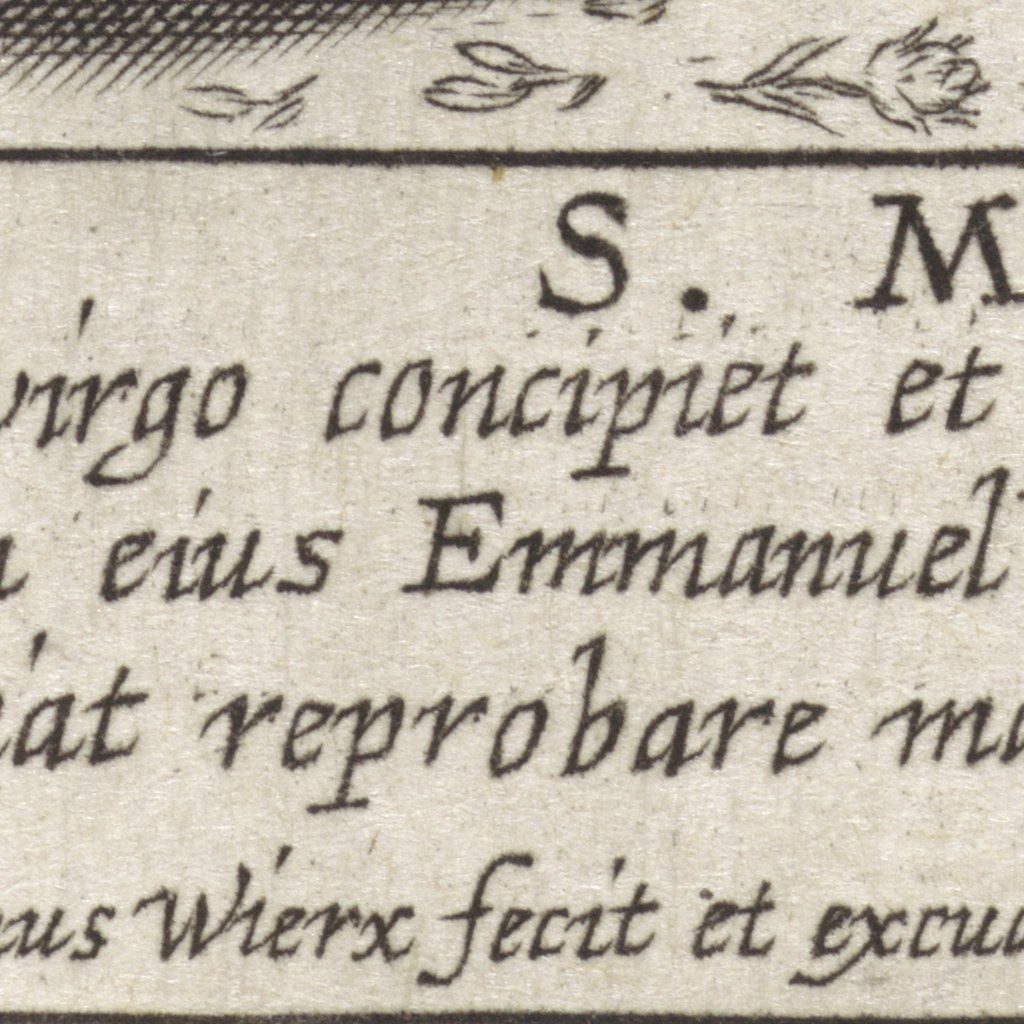 S. M
virgo concipiet et
eius Emmanuel
at reprobare ma
us Wierx fecit et excud